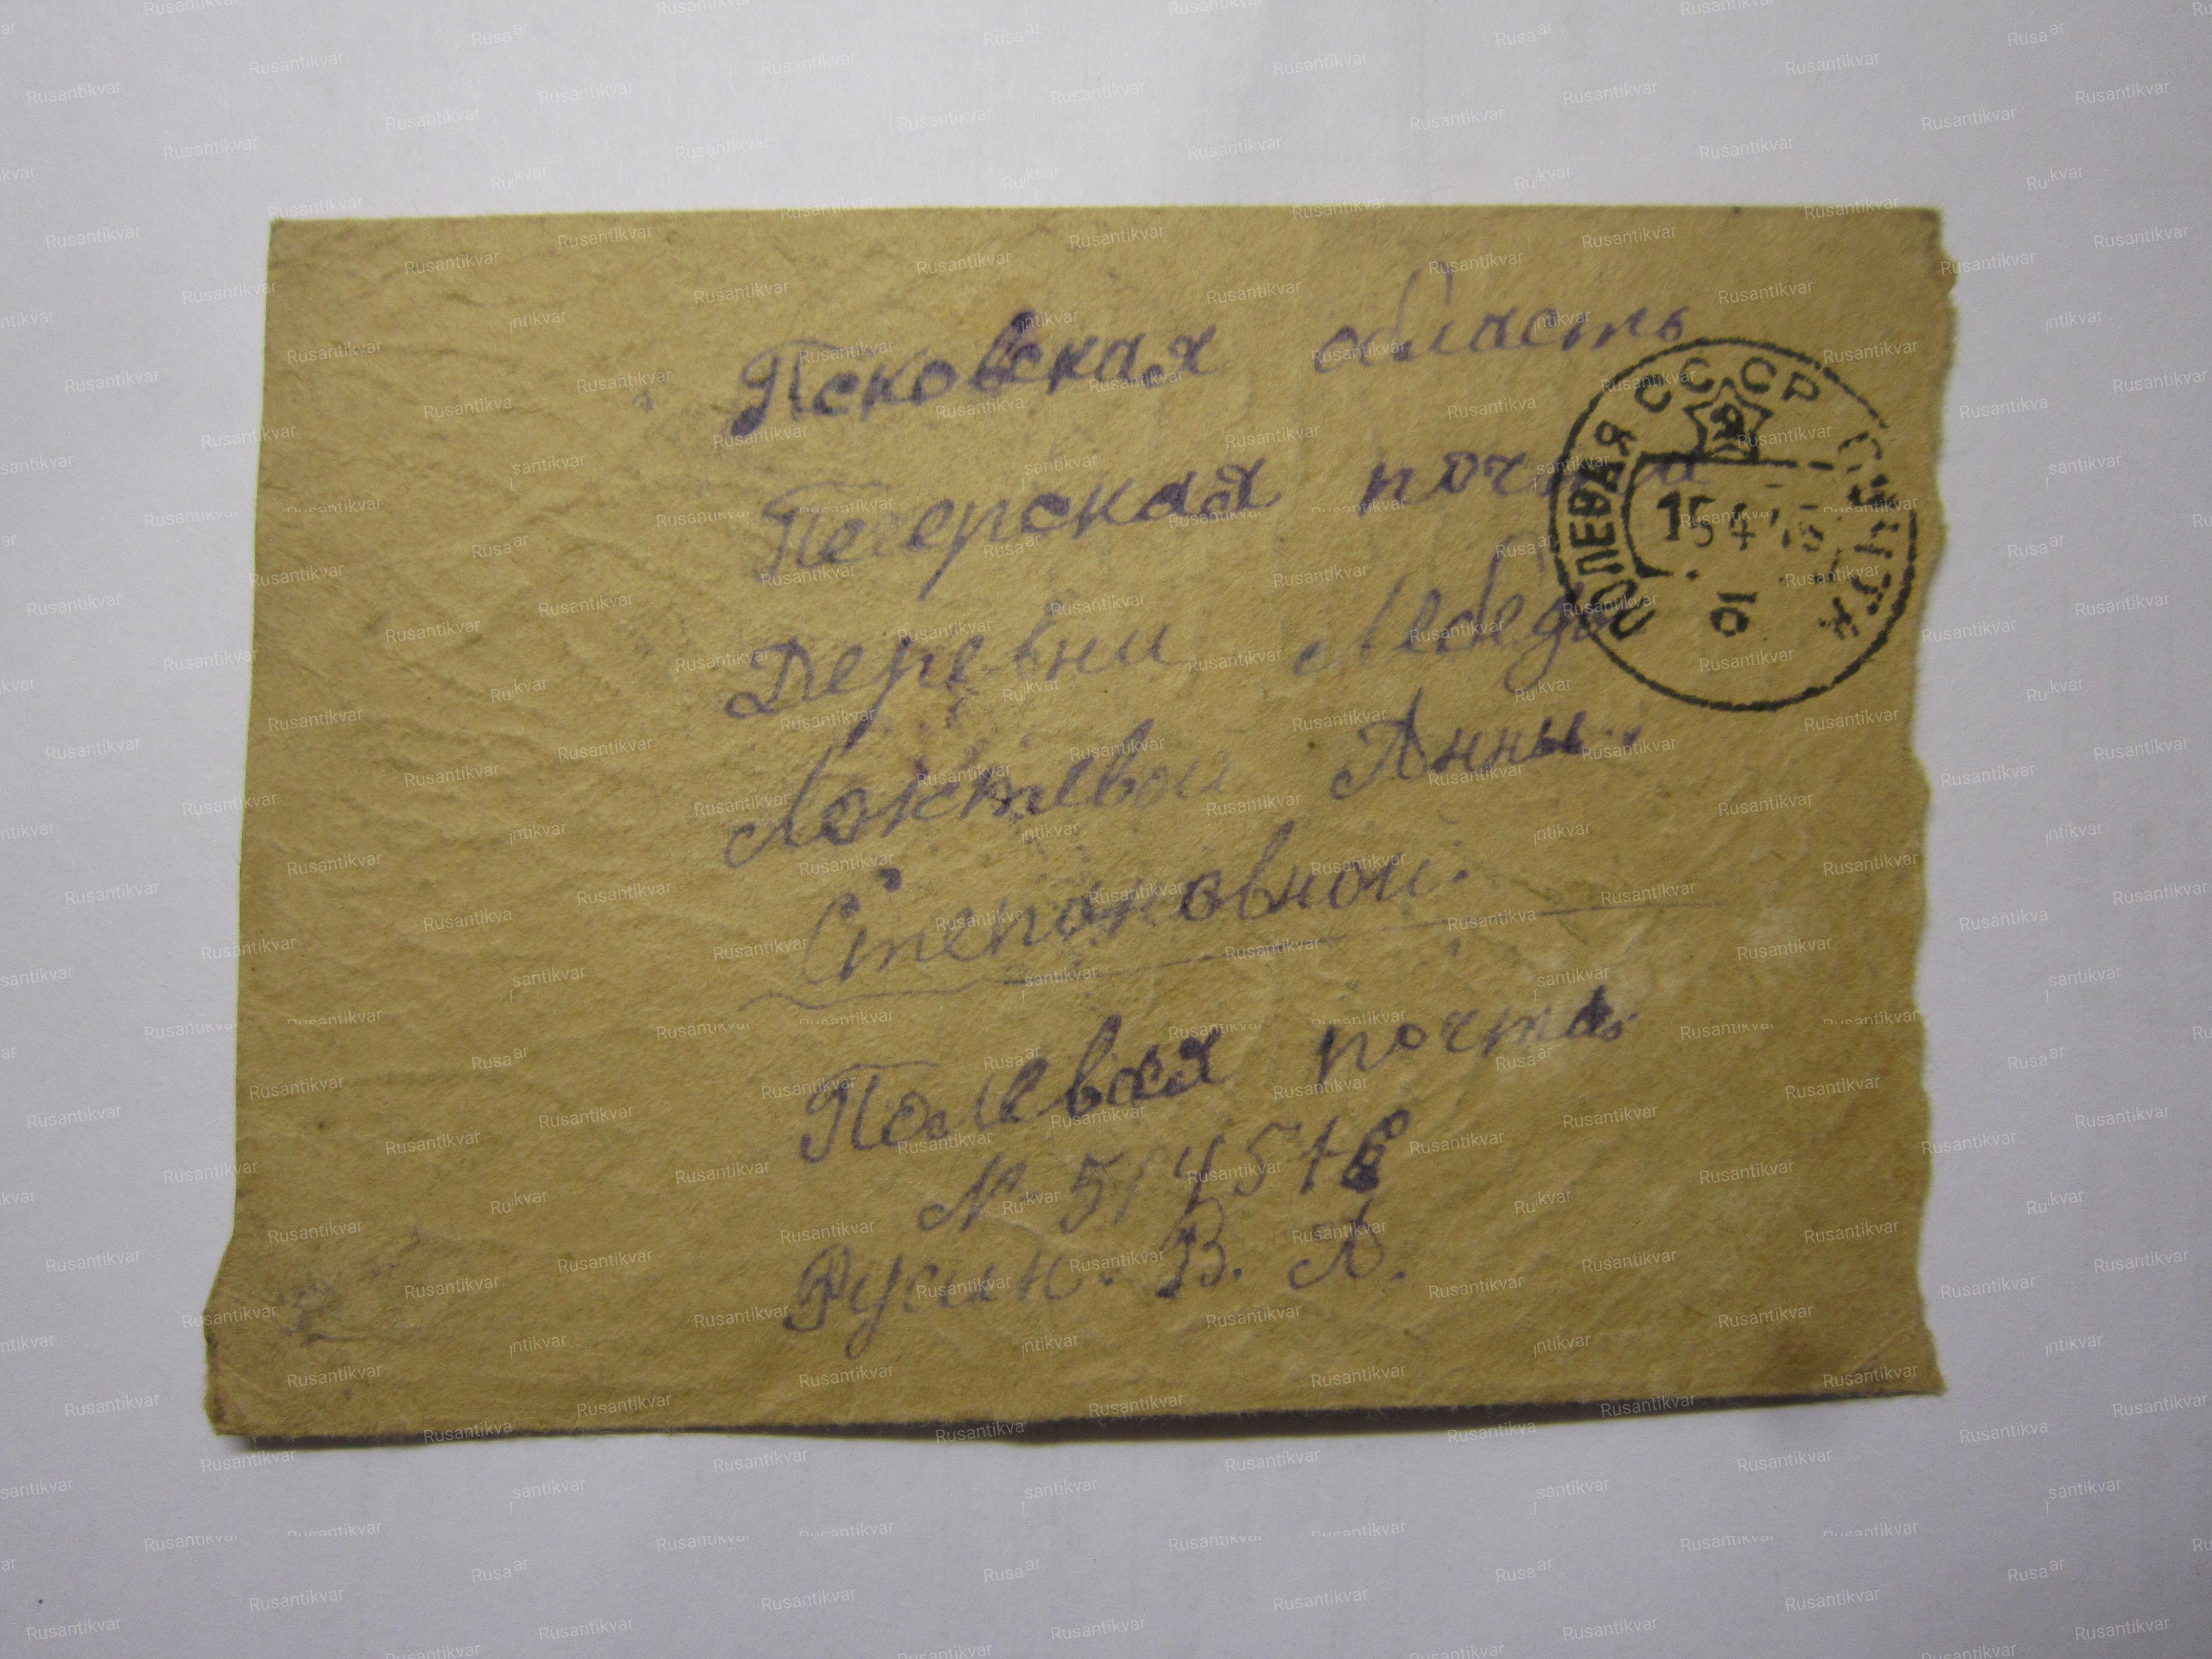 Псковская область
Печерская почта
Деревни Лебеды
Локтевой Анны.
Степоновной.
Полевая почта
№ 51451 в
Русин. В. А.
ПОЛЕВАЯ СССР ПОЧТА
15 4
Rusantikvar